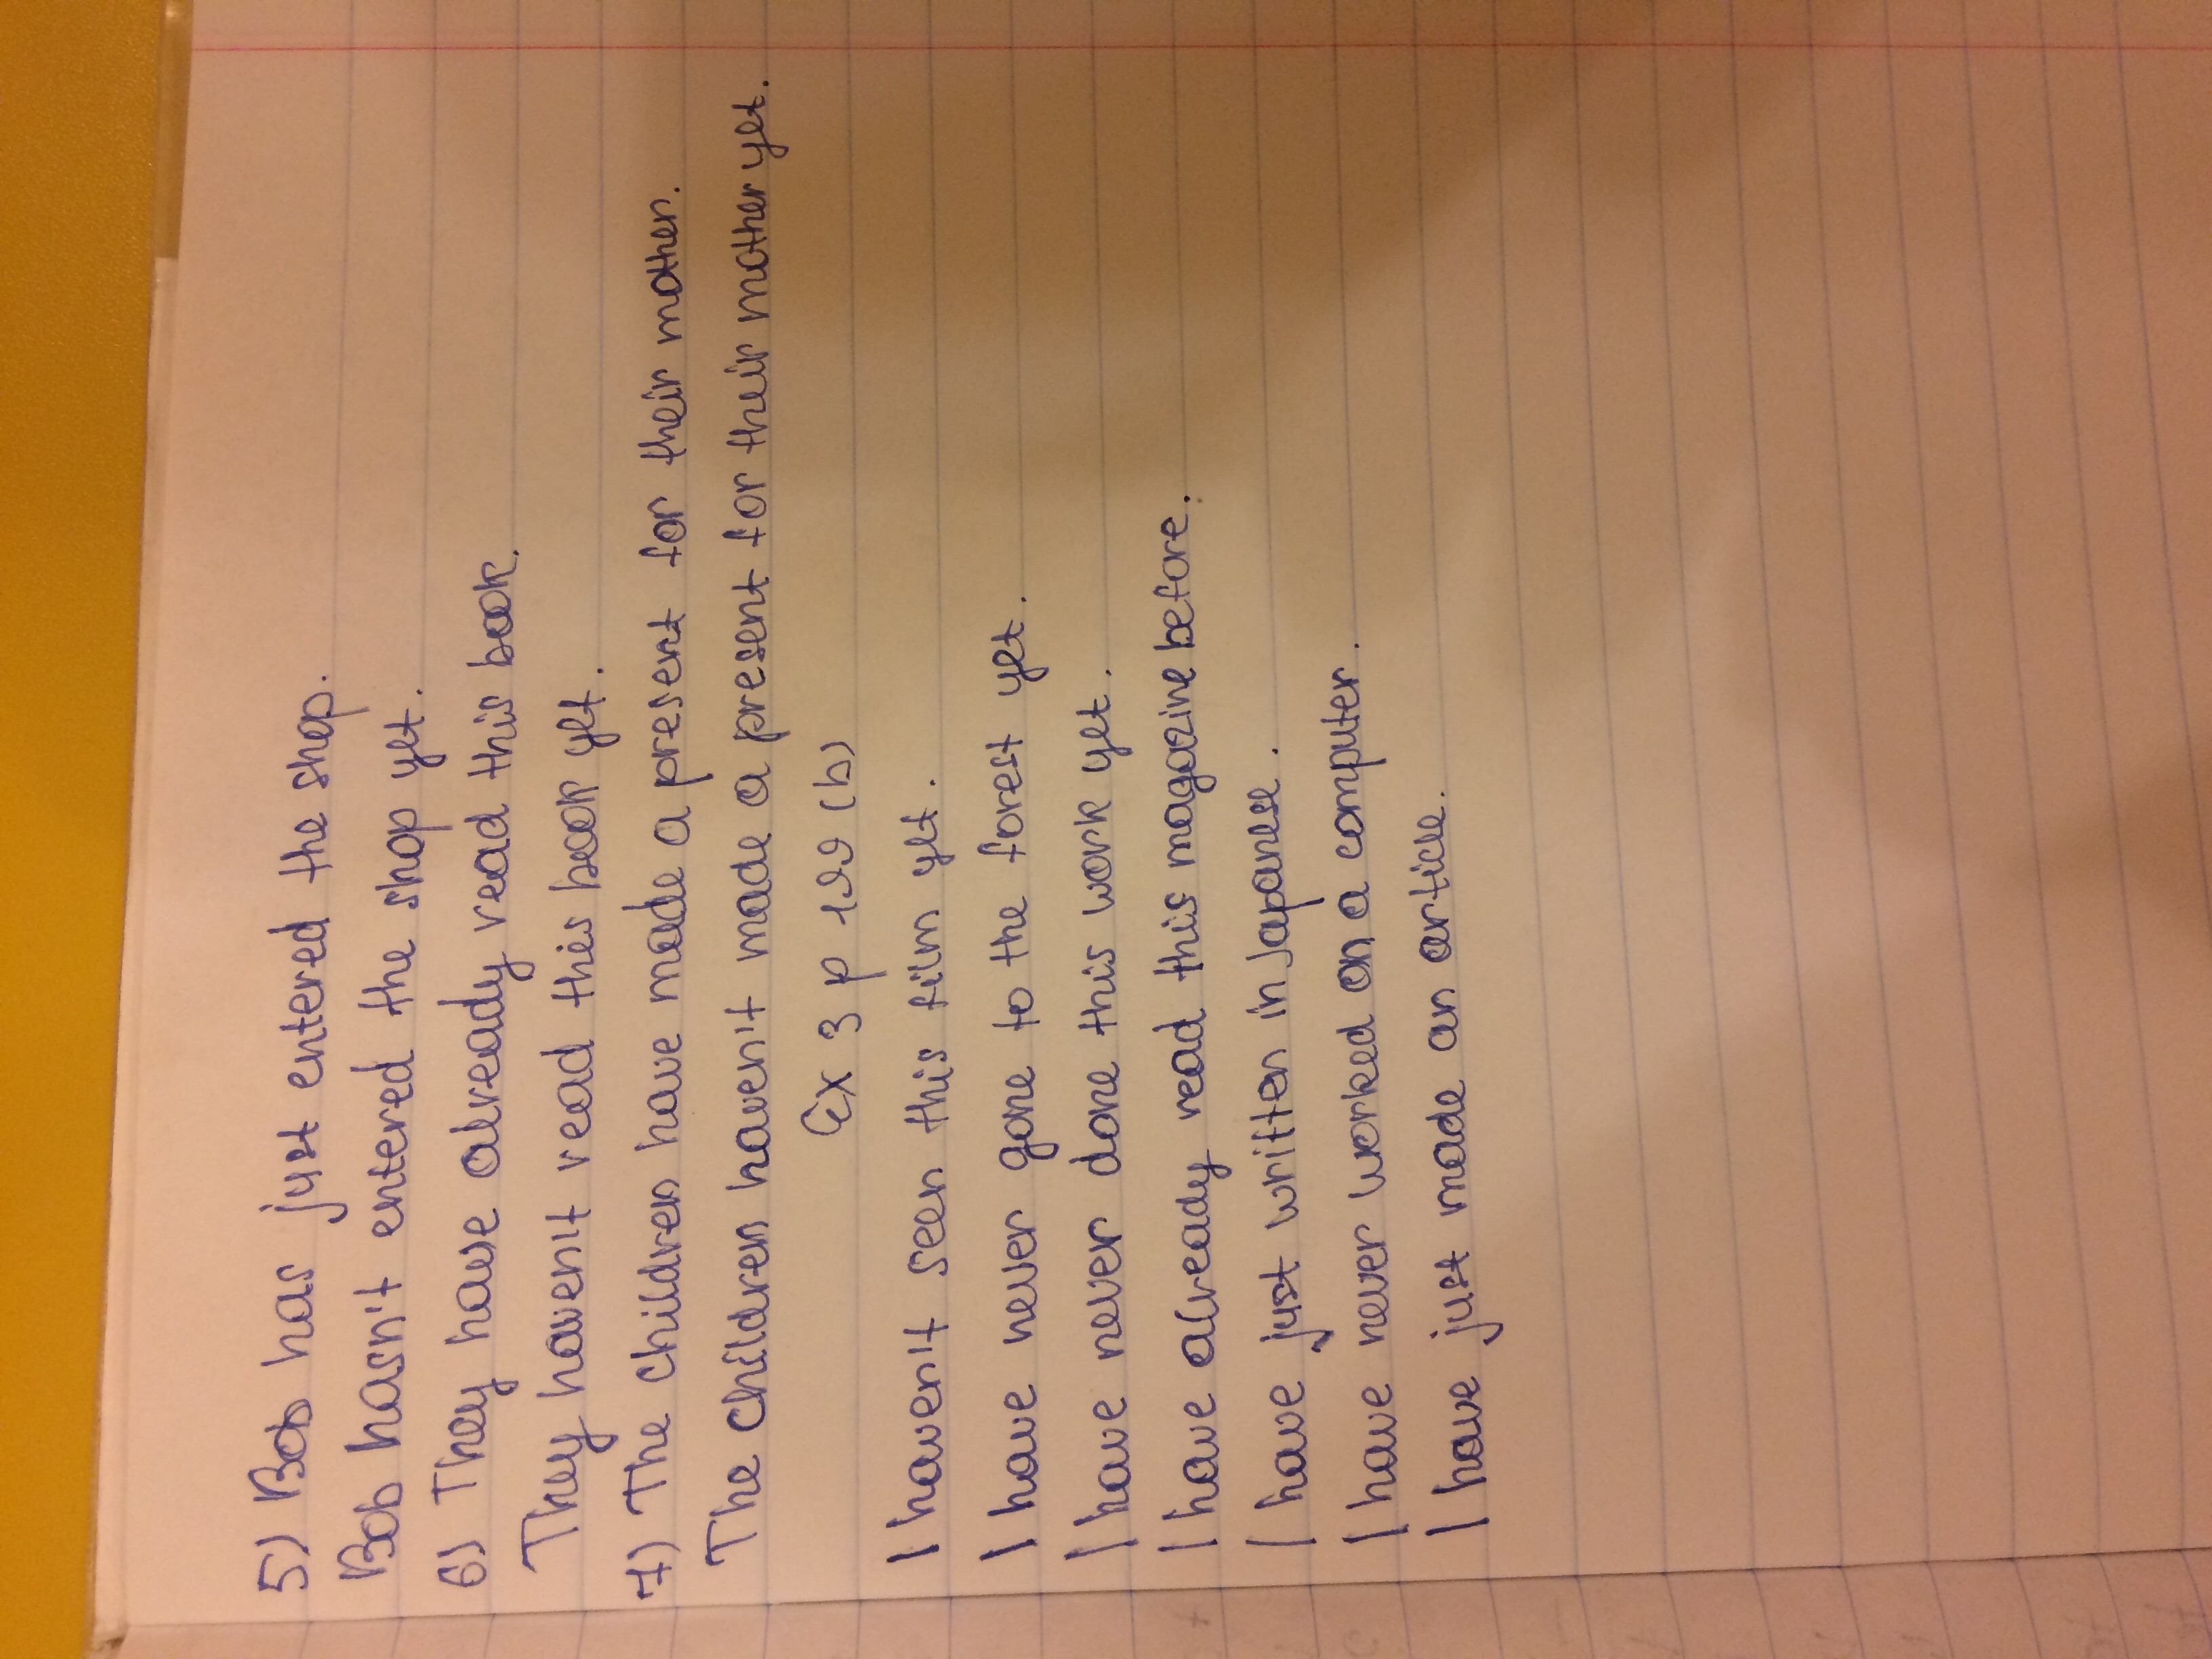 5) Bob has just entered the shop.
Bob hasn't entered the shop yet.
6) They have already read this book.
They haven't read this book yet.
7) The children have made a present for their mother.
The children haven't made a present for their mother yet.
Ex 3 p 199 (b)
I haven't seen this film yet.
I have never gone to the forest yet.
I have never done this work yet.
I have already read this magazine before.
I have just written in Japanese.
I have never worked on a computer.
I have just made an article.